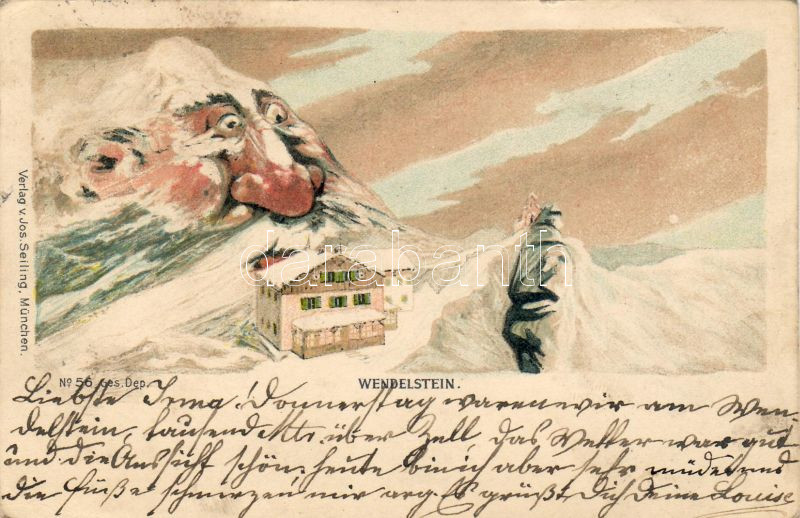 Verlag v. Jos. Seiling, München.
No 56. Ges. Dep.
WENDELSTEIN.
databanth
Liebste Irma! Donnerstag waren wir am Wen-
delstein, tausend Mtr. über Zell das Wetter war gut
und die Aussicht schön, heute bin ich aber sehr müde und
die Füße schmerzen mir arg. Es grüßt Dich Deine Louise